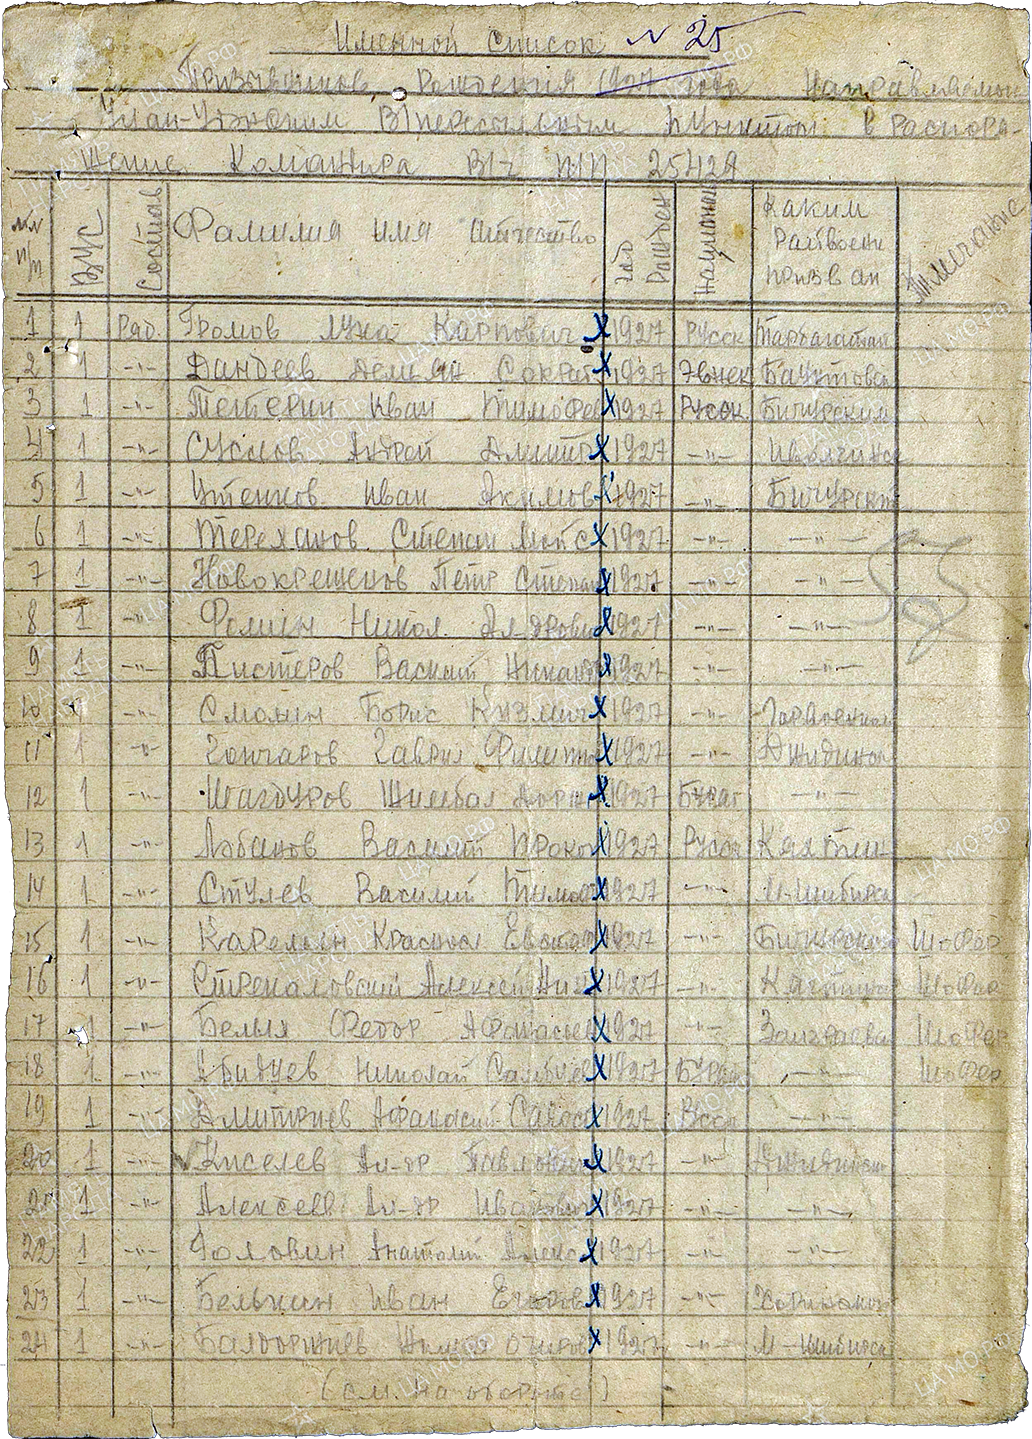 Именной список N 25
Призывников, рождения 1927 года Направляемой
Улан-Удэнским В/пересыльным пунктом в распоря-
жение Командира В/ч П/П 25429
№№ п/п ВУС Состав Фамилия имя отчество год рожден национал Каким райвоен призван Примечание
1 1 Ряд. Громов Лука Карпович 1927 Русск Тарбагатай
2 1 -"- Дандеев Демьян Сократ 1927 Эвенк Баунтовск
3 1 -"- Петерин Иван Тимофе 1927 Русск Бичурским
4 1 -"- Суслов Андрей Дмит 1927 -"- Иволгинск
5 1 -"- Утенков Иван Акимов 1927 -"- Бичурский
6 1 -"- Тереханов Степан Моис 1927 -"- -"-
7 1 -"- Новокрещенов Петр Степан 1927 -"- -"-
8 1 -"- Фомин Никол. Ал-дрович 1927 -"- -"-
9 1 -"- Пистеров Василий 1927 -"- -"-
10 1 -"- Смолин Борис Кузмич 1927 -"- Горвоенком
11 1 -"- Гончаров Гаврил Филиппо 1927 -"- Джидинск
12 1 -"- Шагдуров Шимбал Дорж 1927 Бурят -"-
13 1 -"- Лобанов Василий Прокоп 1927 Русск Кяхтин
14 1 -"- Стулев Василий Тимоф 1927 -"- М-шибирск
15 1 -"- Карелин Краснол 1927 -"- Бичурском Шофер
16 1 -"- Стрекаловский Алексей Ник 1927 -"- Кяхтинск Шофер
17 1 -"- Белых Федор Афанасьев 1927 -"- Заиграева Шофер
18 1 -"- Абидуев Николай Самбуев 1927 Бурят -"- Шофер
19 1 -"- Дмитриев Афанасий 1927 Русск -"-
20 1 -"- Киселев Ал-др Павлович 1927 -"- Джидинск
21 1 -"- Алексеев Ал-др Иванович 1927 -"- -"-
22 1 -"- Головин Анатолий Алекс 1927 -"- -"-
23 1 -"- Белькин Иван Егоров 1927 -"- Хоринском
24 1 -"- Балдоржиев Очиров 1927 -"- М-шибирск
(см. на обороте)
ЦАМО.РФ